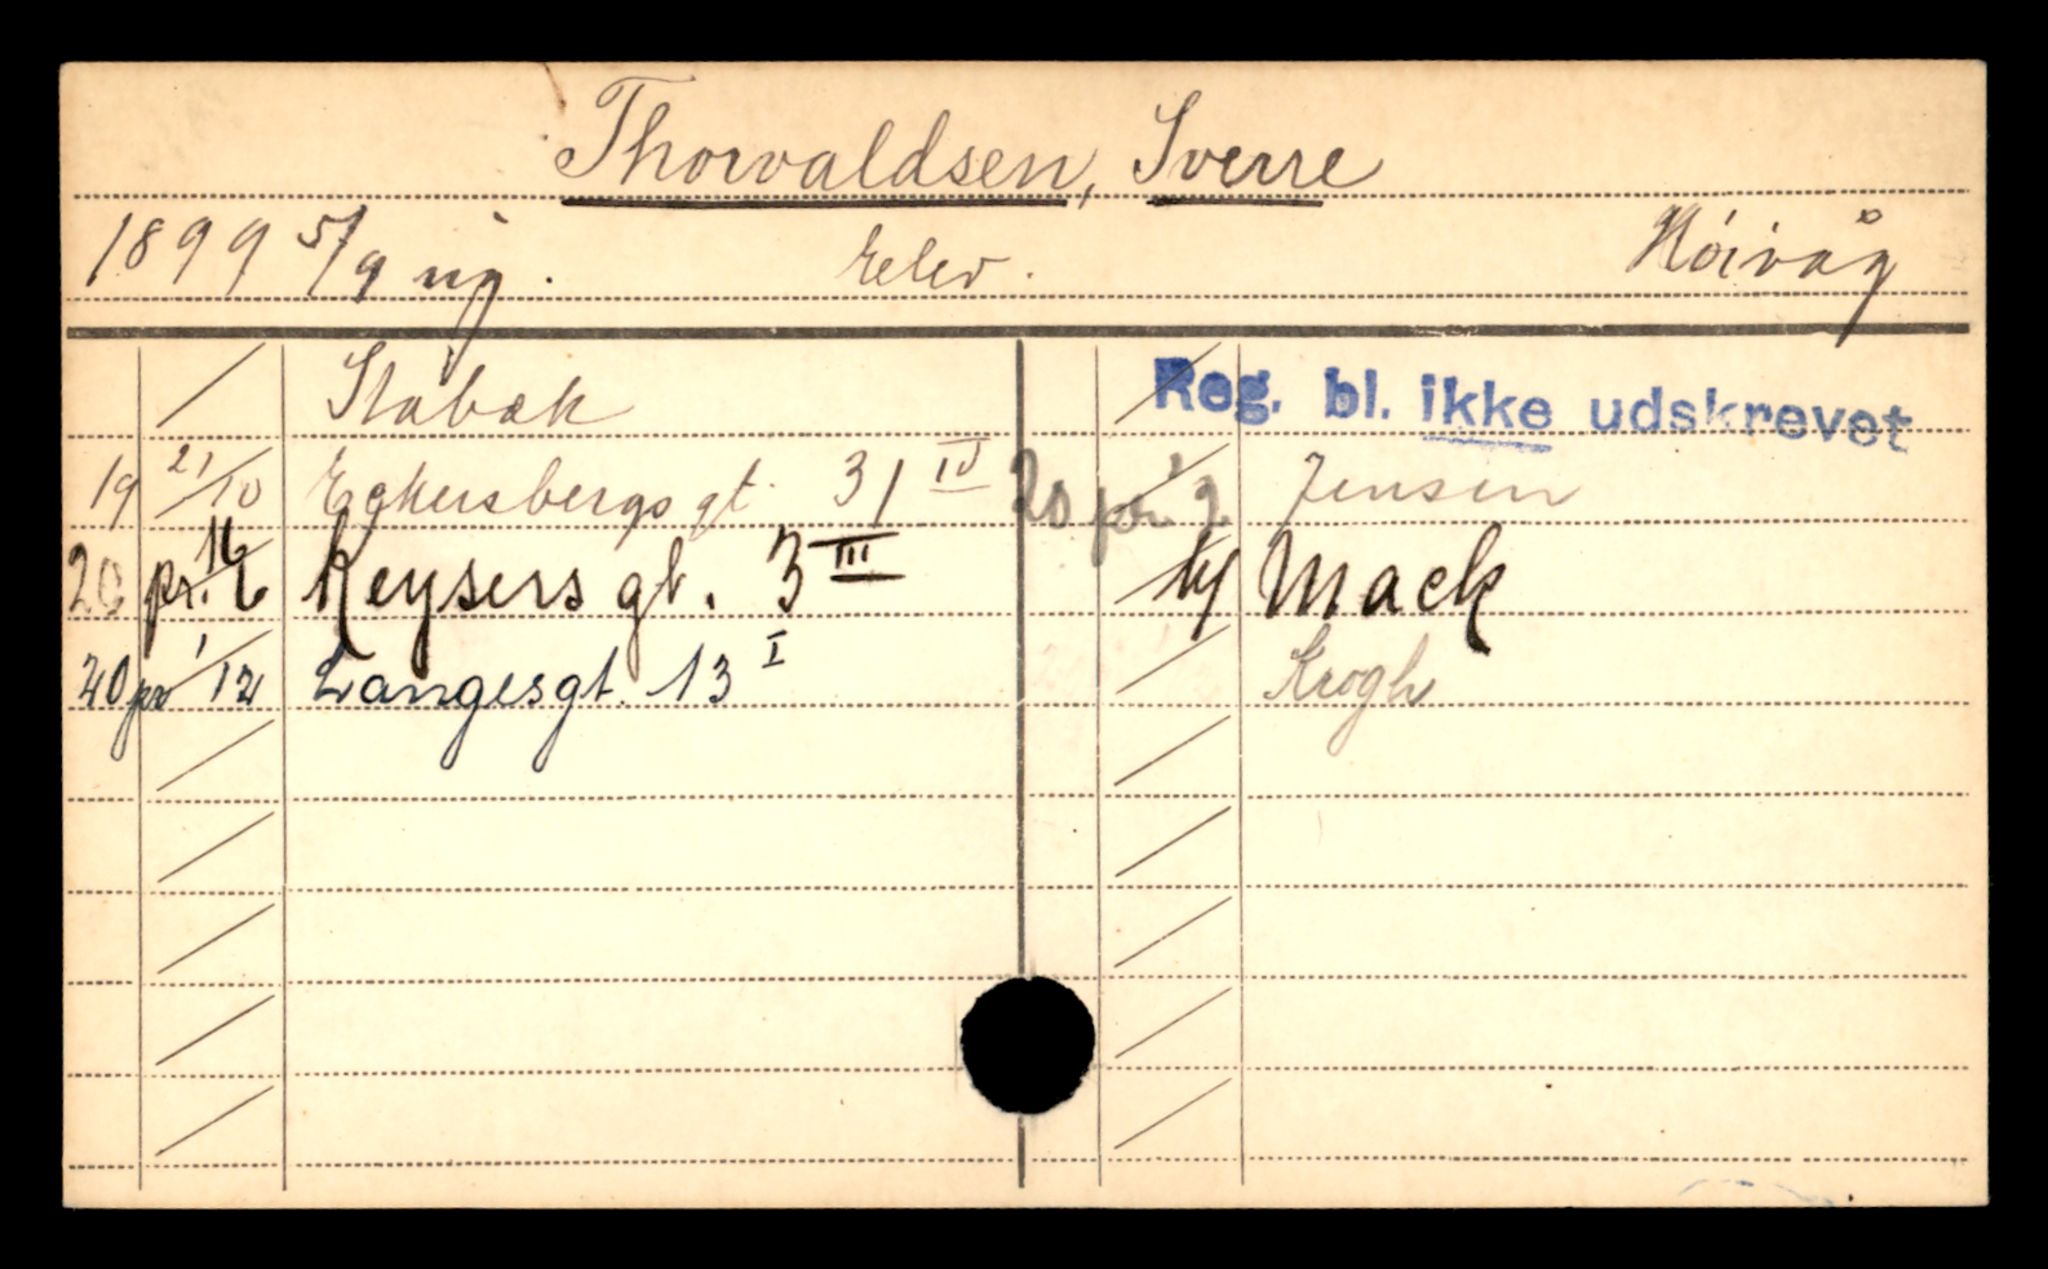 Thorvaldsen, Sverre
1899 5/9 ug. Elev. Höivåg
Stabæk Reg. bl. ikke udskrevet
19 21/10 Eckersbergsgt. 31 IV 20 pr. Jensen
20 pr. 16/6 Keysers gt. 3 III Mack
20 pr 1/12 Langesgt. 13 I Krogh